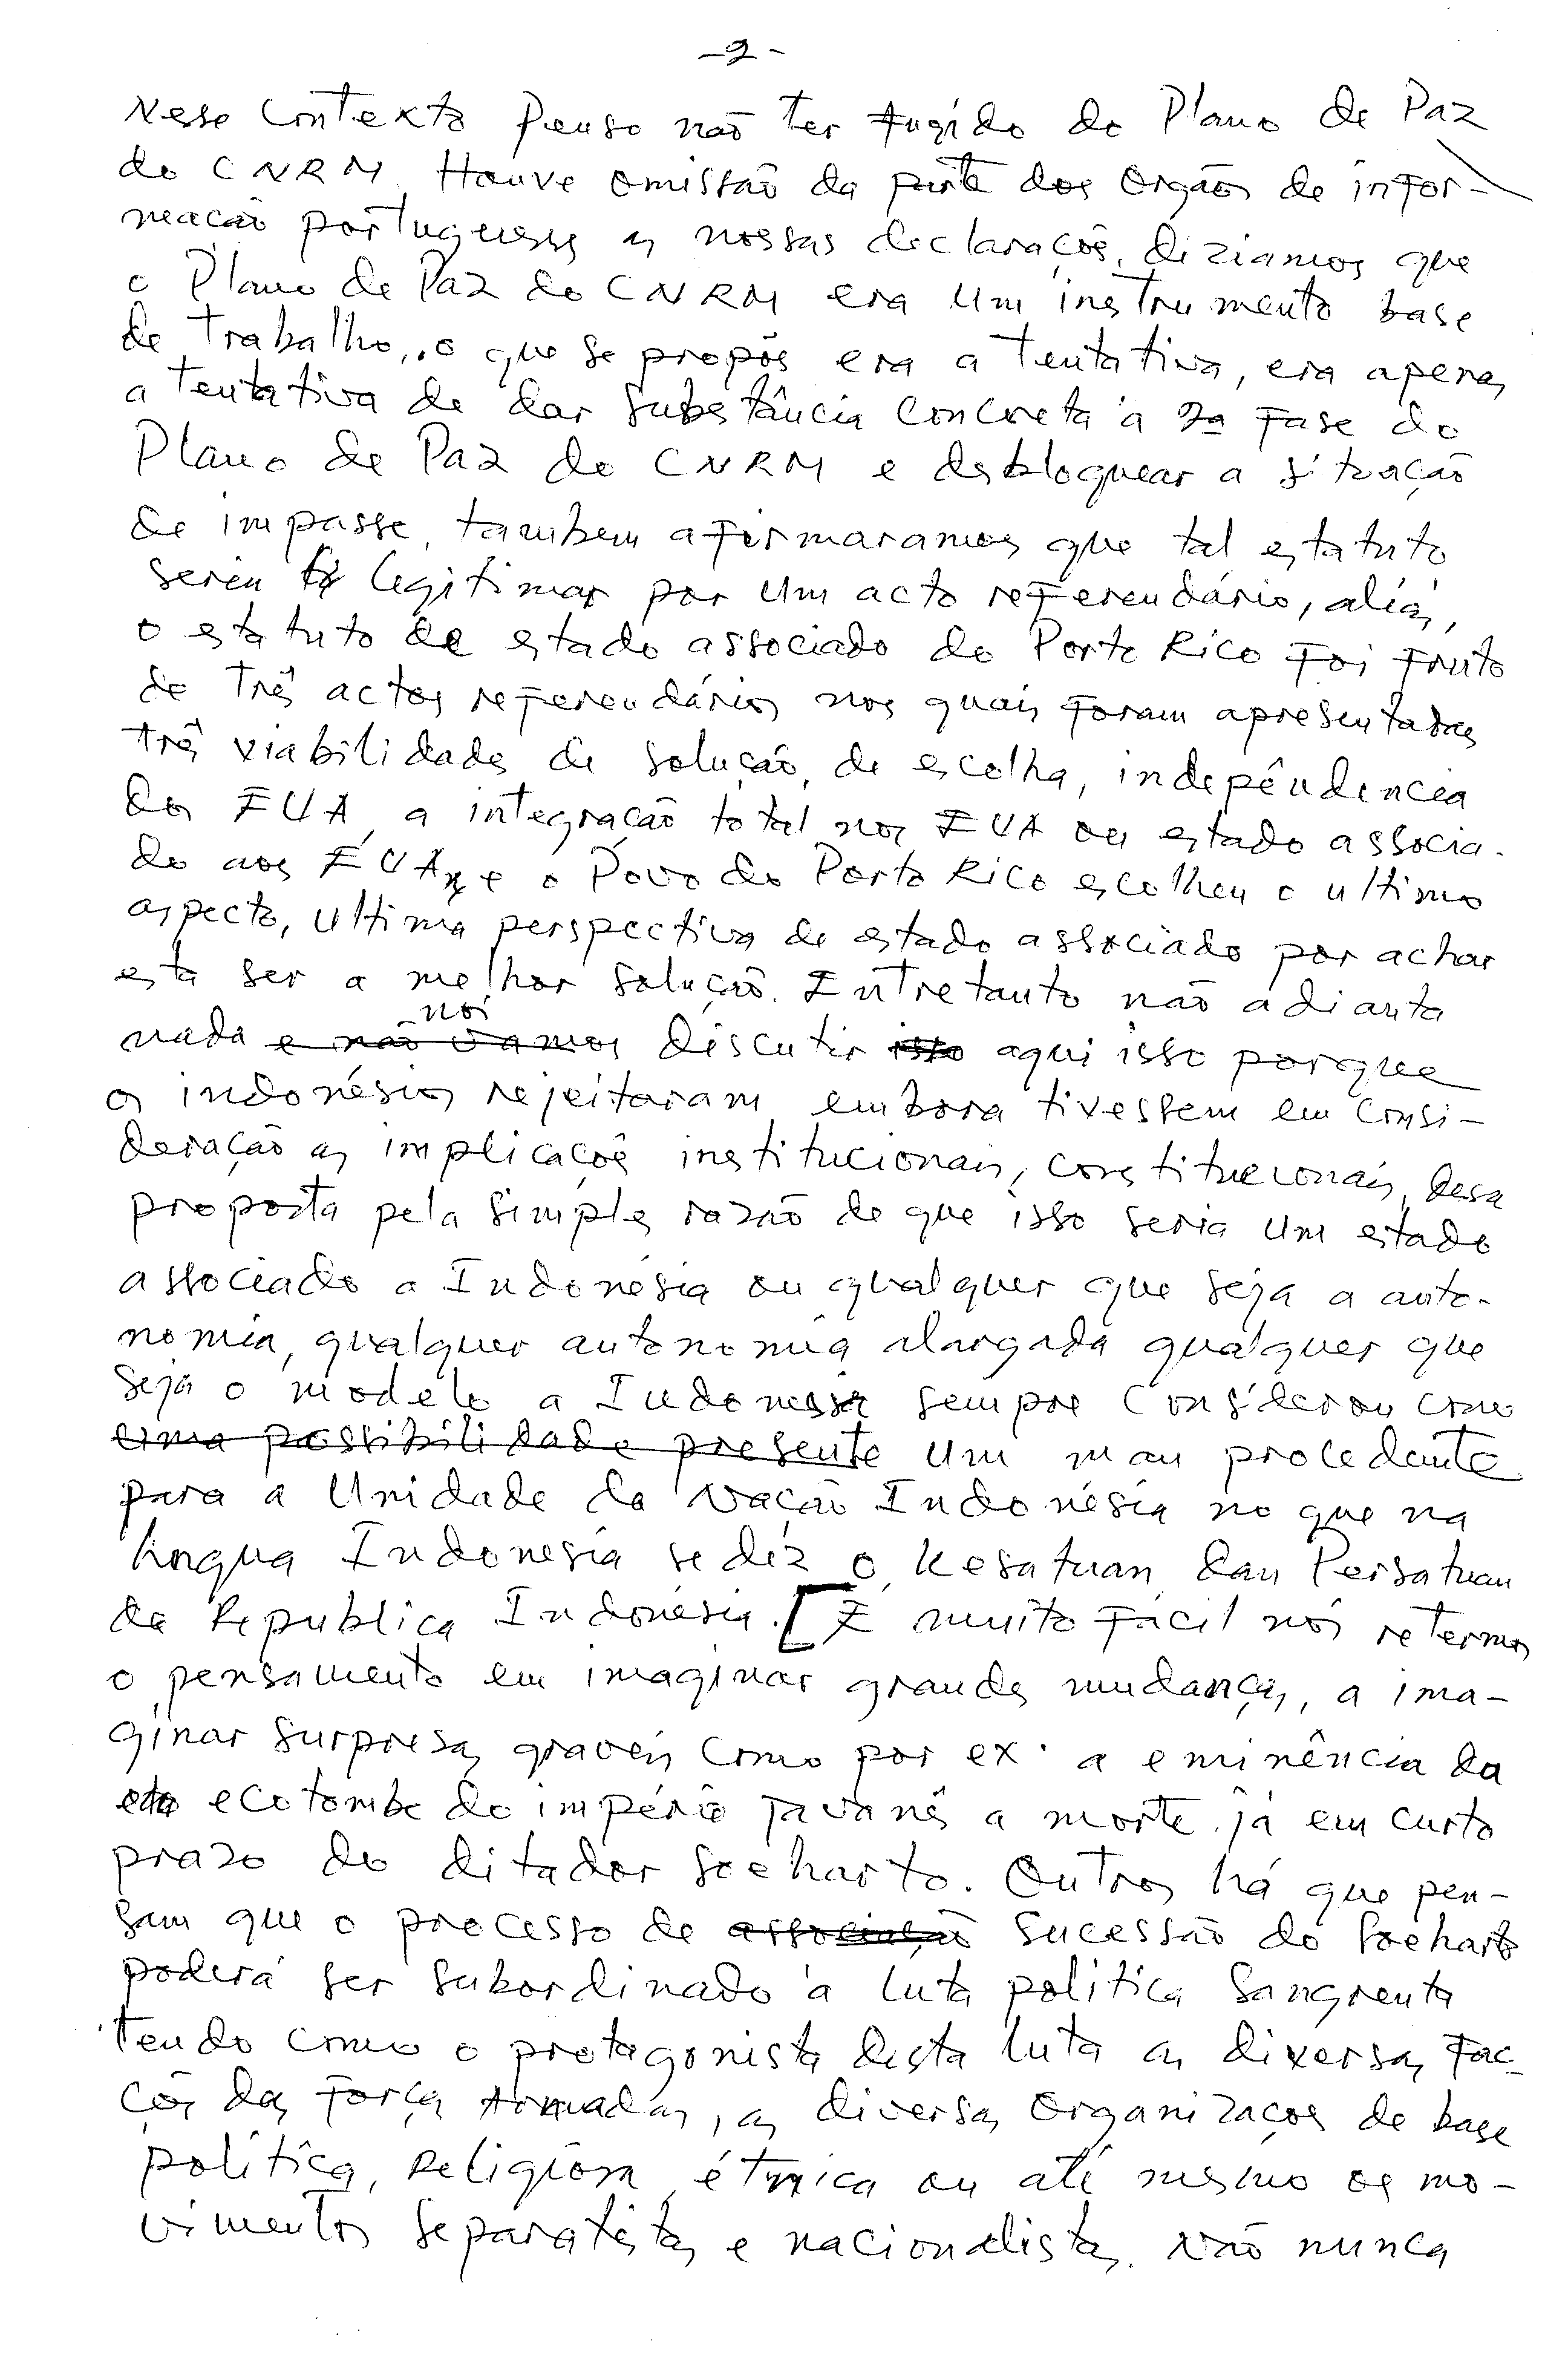 -2-
Nesse contexto penso não ter fugido do Plano de Paz
do CNRM. Houve omissão da parte dos orgãos de infor-
mação portugueses as nossas declarações, diziamos que
o Plano de Paz do CNRM era um instrumento base
de trabalho, o que se propôs era a tentativa, era apenas
a tentativa de dar substância concreta à 2ª fase do
Plano de Paz do CNRM e desbloquear a situação
de impasse, tambem afirmaramos que tal estatuto
seria legitimar por um acto referendário, aliás,
o estatuto de estado associado do Porto Rico foi fruto
de três actos referendários nos quais foram apresentadas
três viabilidades de solução, de escolha, indepêndencia
dos EUA, a integração total nos EUA ou estado associa-
do aos EUA, e o Povo do Porto Rico escolheu o ultimo
aspecto, ultima perspectiva de estado associado por achar
esta ser a melhor solução. Entretanto não adianta
nós
nada e não vamos discutir isto aqui isso porque
os indonésios rejeitaram embora tivessem em consi-
deração as implicações institucionais, constitucionais, desa
proposta pela simples razão de que isso seria um estado
associado a Indonésia ou qualquer que seja a auto-
nomia, qualquer autonomia alargada qualquer que
seja o modelo a Indonesia sempre considerou como
uma possibilidade presente um mau procedante
para a Unidade da Nação Indonésia no que na
lingua Indonésia se diz o Kesatuan dan Persatuan
da Republica Indonésia. [É muito fácil nós retermos
o pensamento em imaginar grandes mudanças, a ima-
ginar surpresas graves como por ex. a eminência da
ecotombe do império javanês a morte já em curto
prazo do ditador Soeharto. Outros há que pen-
sam que o processo de associação sucessão do Soeharto
poderá ser subordinado à luta politica sangrenta
tendo como o protagonista desta luta as diversas fac-
ções das forças armadas, as diversas organizações de base
politica, religiosa, étnica ou até mesmo os mo-
vimentos separatistas e nacionalistas. Não nunca